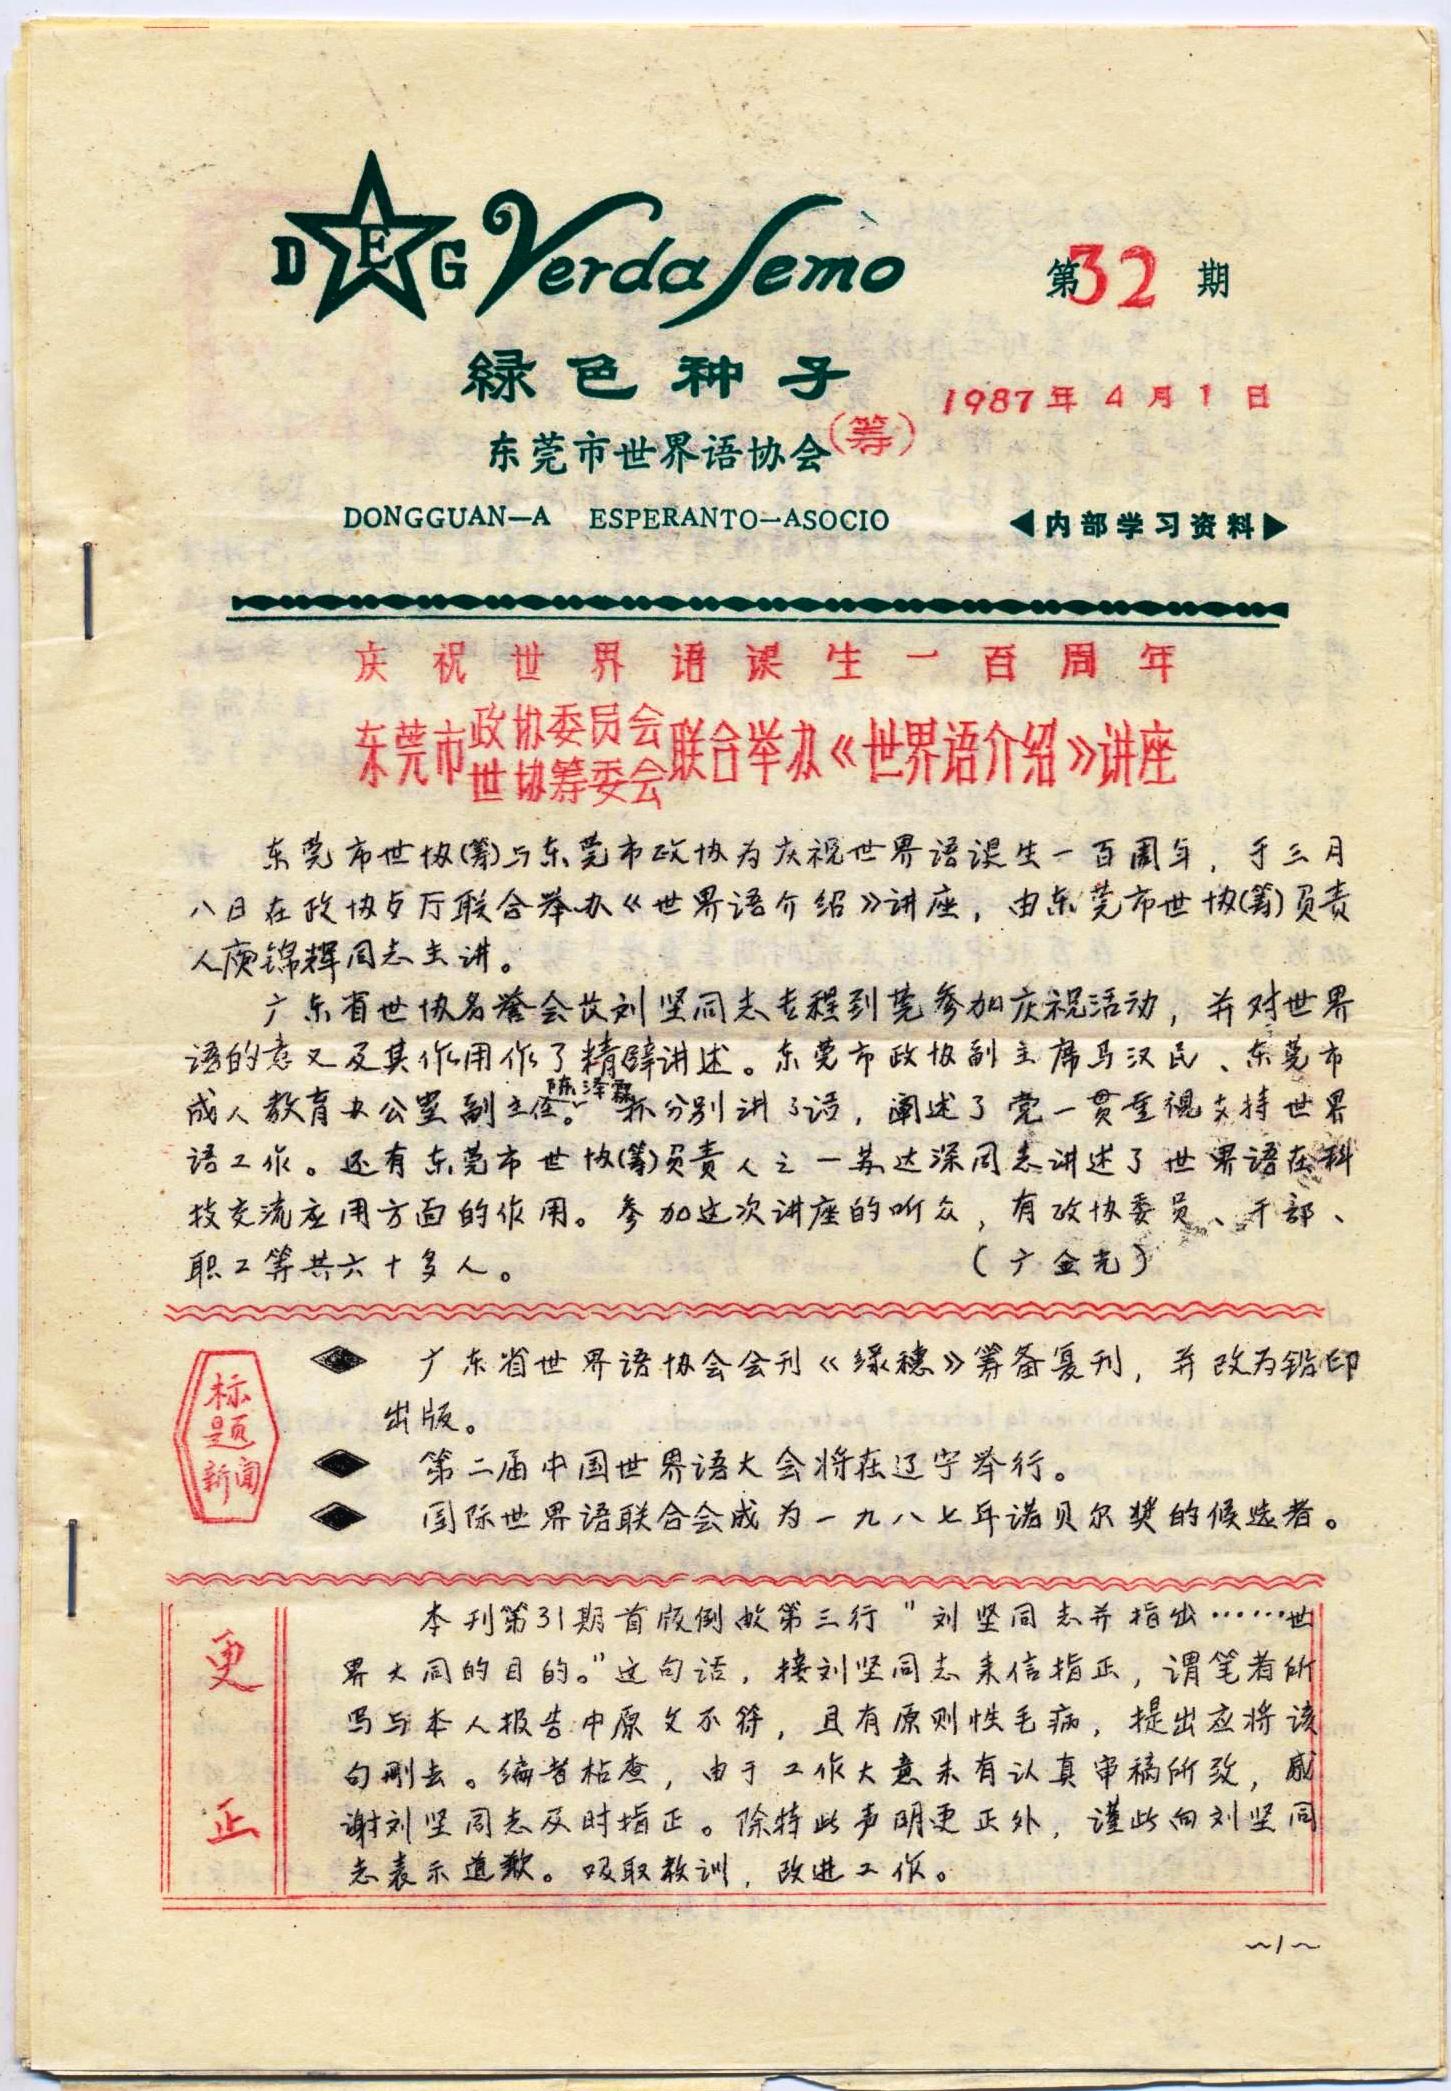 DEG Verda Semo
第32期
緑色种子
1987年4月1日
东莞市世界语协会(筹)
DONGGUAN—A ESPERANTO—ASOCIO
内部学习资料
庆祝世界语诞生一百周年
东莞市政协委员会世协筹委会联合举办《世界语介绍》讲座
东莞市世协(筹)与东莞市政协为庆祝世界语诞生一百周年，于三月
八日在政协歺厅联合举办《世界语介绍》讲座，由东莞市世协(筹)负责
人庾锦辉同志主讲。
广东省世协名誉会长刘坚同志专程到莞参加庆祝活动，并对世界
语的意义及其作用作了精辟讲述。东莞市政协副主席马汉民、东莞市
成人教育办公室副主任陈泽霖。亦分别讲了话，阐述了党一贯重视支持世界
语工作。还有东莞市世协(筹)负责人之一苏达深同志讲述了世界语在科
技交流应用方面的作用。参加这次讲座的听众，有政协委员、干部、
职工等共六十多人。
(广金光)
标题新闻
广东省世界语协会会刊《绿穗》筹备复刊，并改为铅印
出版。
第二届中国世界语大会将在辽宁举行。
国际世界语联合会成为一九八七年诺贝尔奖的候选者。
更正
本刊第31期首版倒数第三行"刘坚同志并指出……世
界大同的目的。"这句话，接刘坚同志来信指正，谓笔者所
写与本人报告中原文不符，且有原则性毛病，提出应将该
句删去。编者检查，由于工作大意未有认真审稿所致，感
谢刘坚同志及时指正。除特此声明更正外，谨此向刘坚同
志表示道歉。吸取教训，改进工作。
~1~